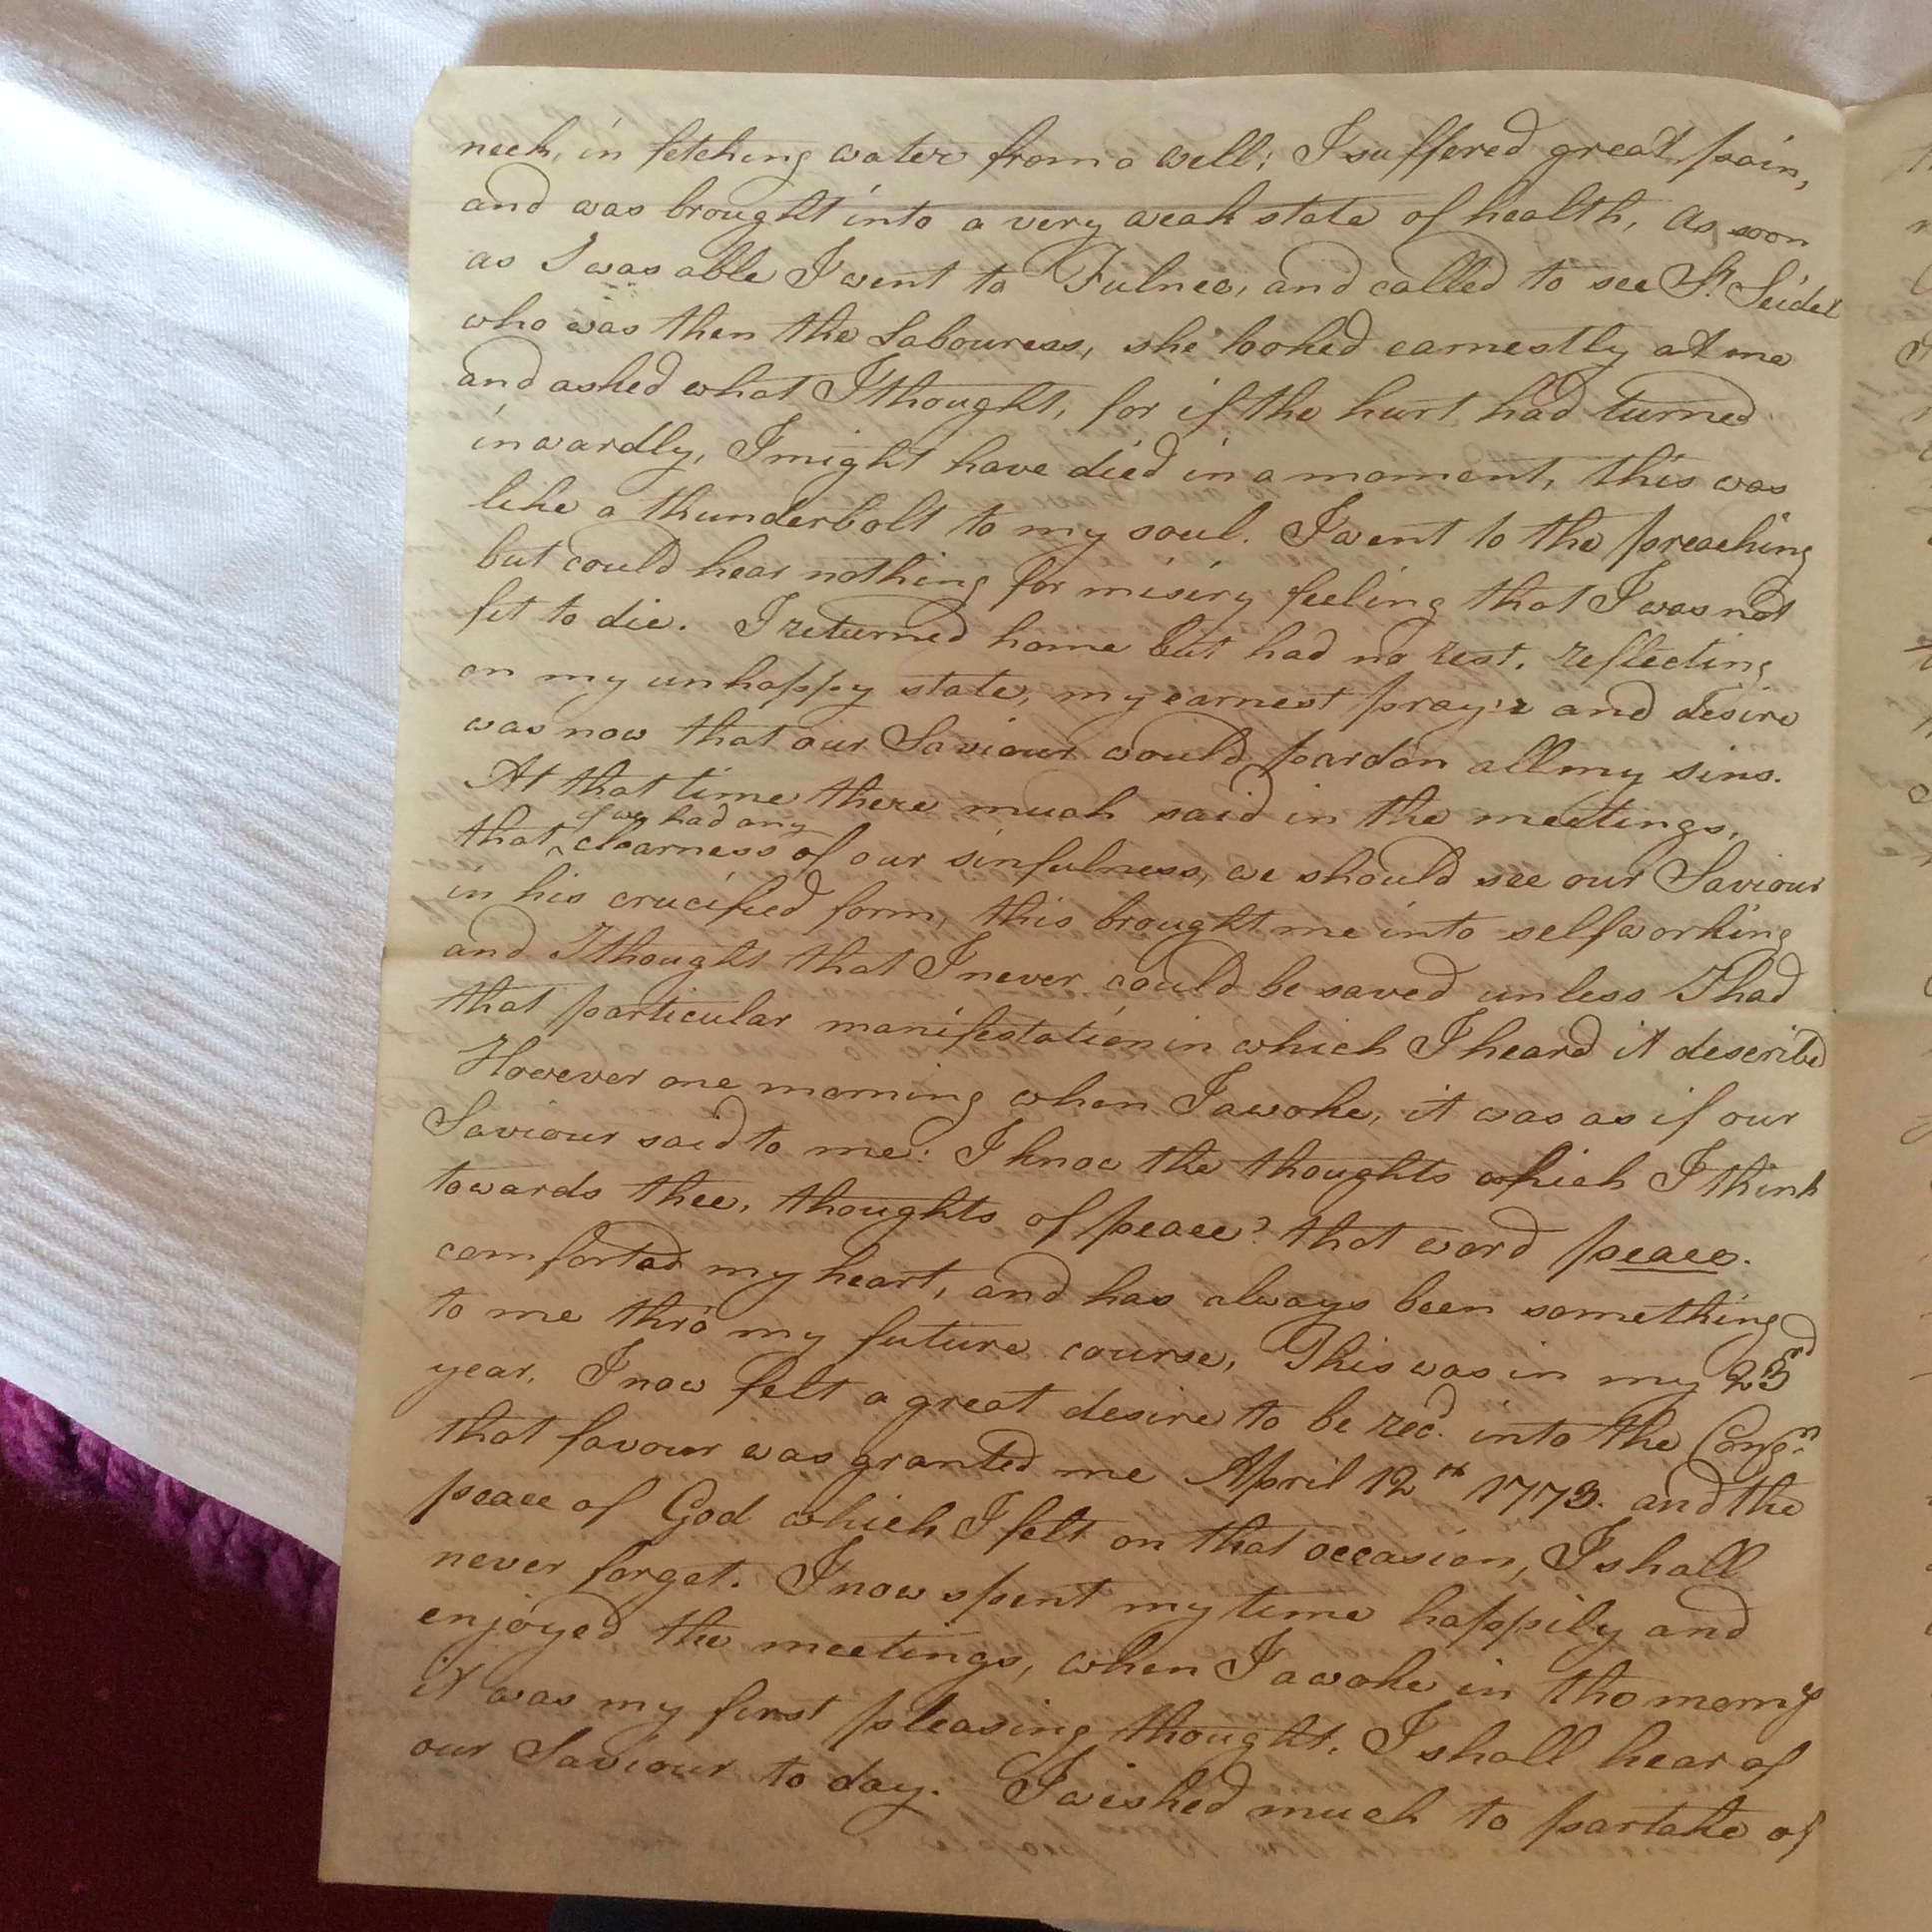 neck, in fetching water from a well; I suffered great pain,
and was brought into a very weak state of health, as soon
as I was able I went to Fulnec, and called to see Sr. Seidel
who was then the Labouress, she looked earnestly at me
and asked what I thought, for if the hurt had turned
inwardly, I might have died in a moment, this was
like a thunderbolt to my soul. I went to the preaching
but could hear nothing for misiry feeling that I was not
fit to die. I returned home but had no rest, reflecting
on my unhappy state, my earnest pray'r and desire
was now that our Saviour would pardon all my sins.
At that time there much said in the meetings,
that if we had any clearness of our sinfulness, we should see our Saviour
in his crucified form, this brought me into selfworking
and I thought that I never could be saved unless I had
that particular manifestation in which I heard it describd
However one morning when I awoke, it was as if our
Saviour said to me: I know the thoughts which I think
towards thee, thoughts of peace? that word peace.
comforted my heart, and has always been something
to me thro my future course, This was in my 23rd
year. I now felt a great desire to be recd. into the Congn.
that favour was granted me April 12th 1773. and the
peace of God which I felt on that occasion, I shall
never forget. I now spent my time happily and
enjoyed the meetings, when I awoke in the morng
it was my first pleasing thought, I shall hear of
our Saviour to day. I wished much to partake of